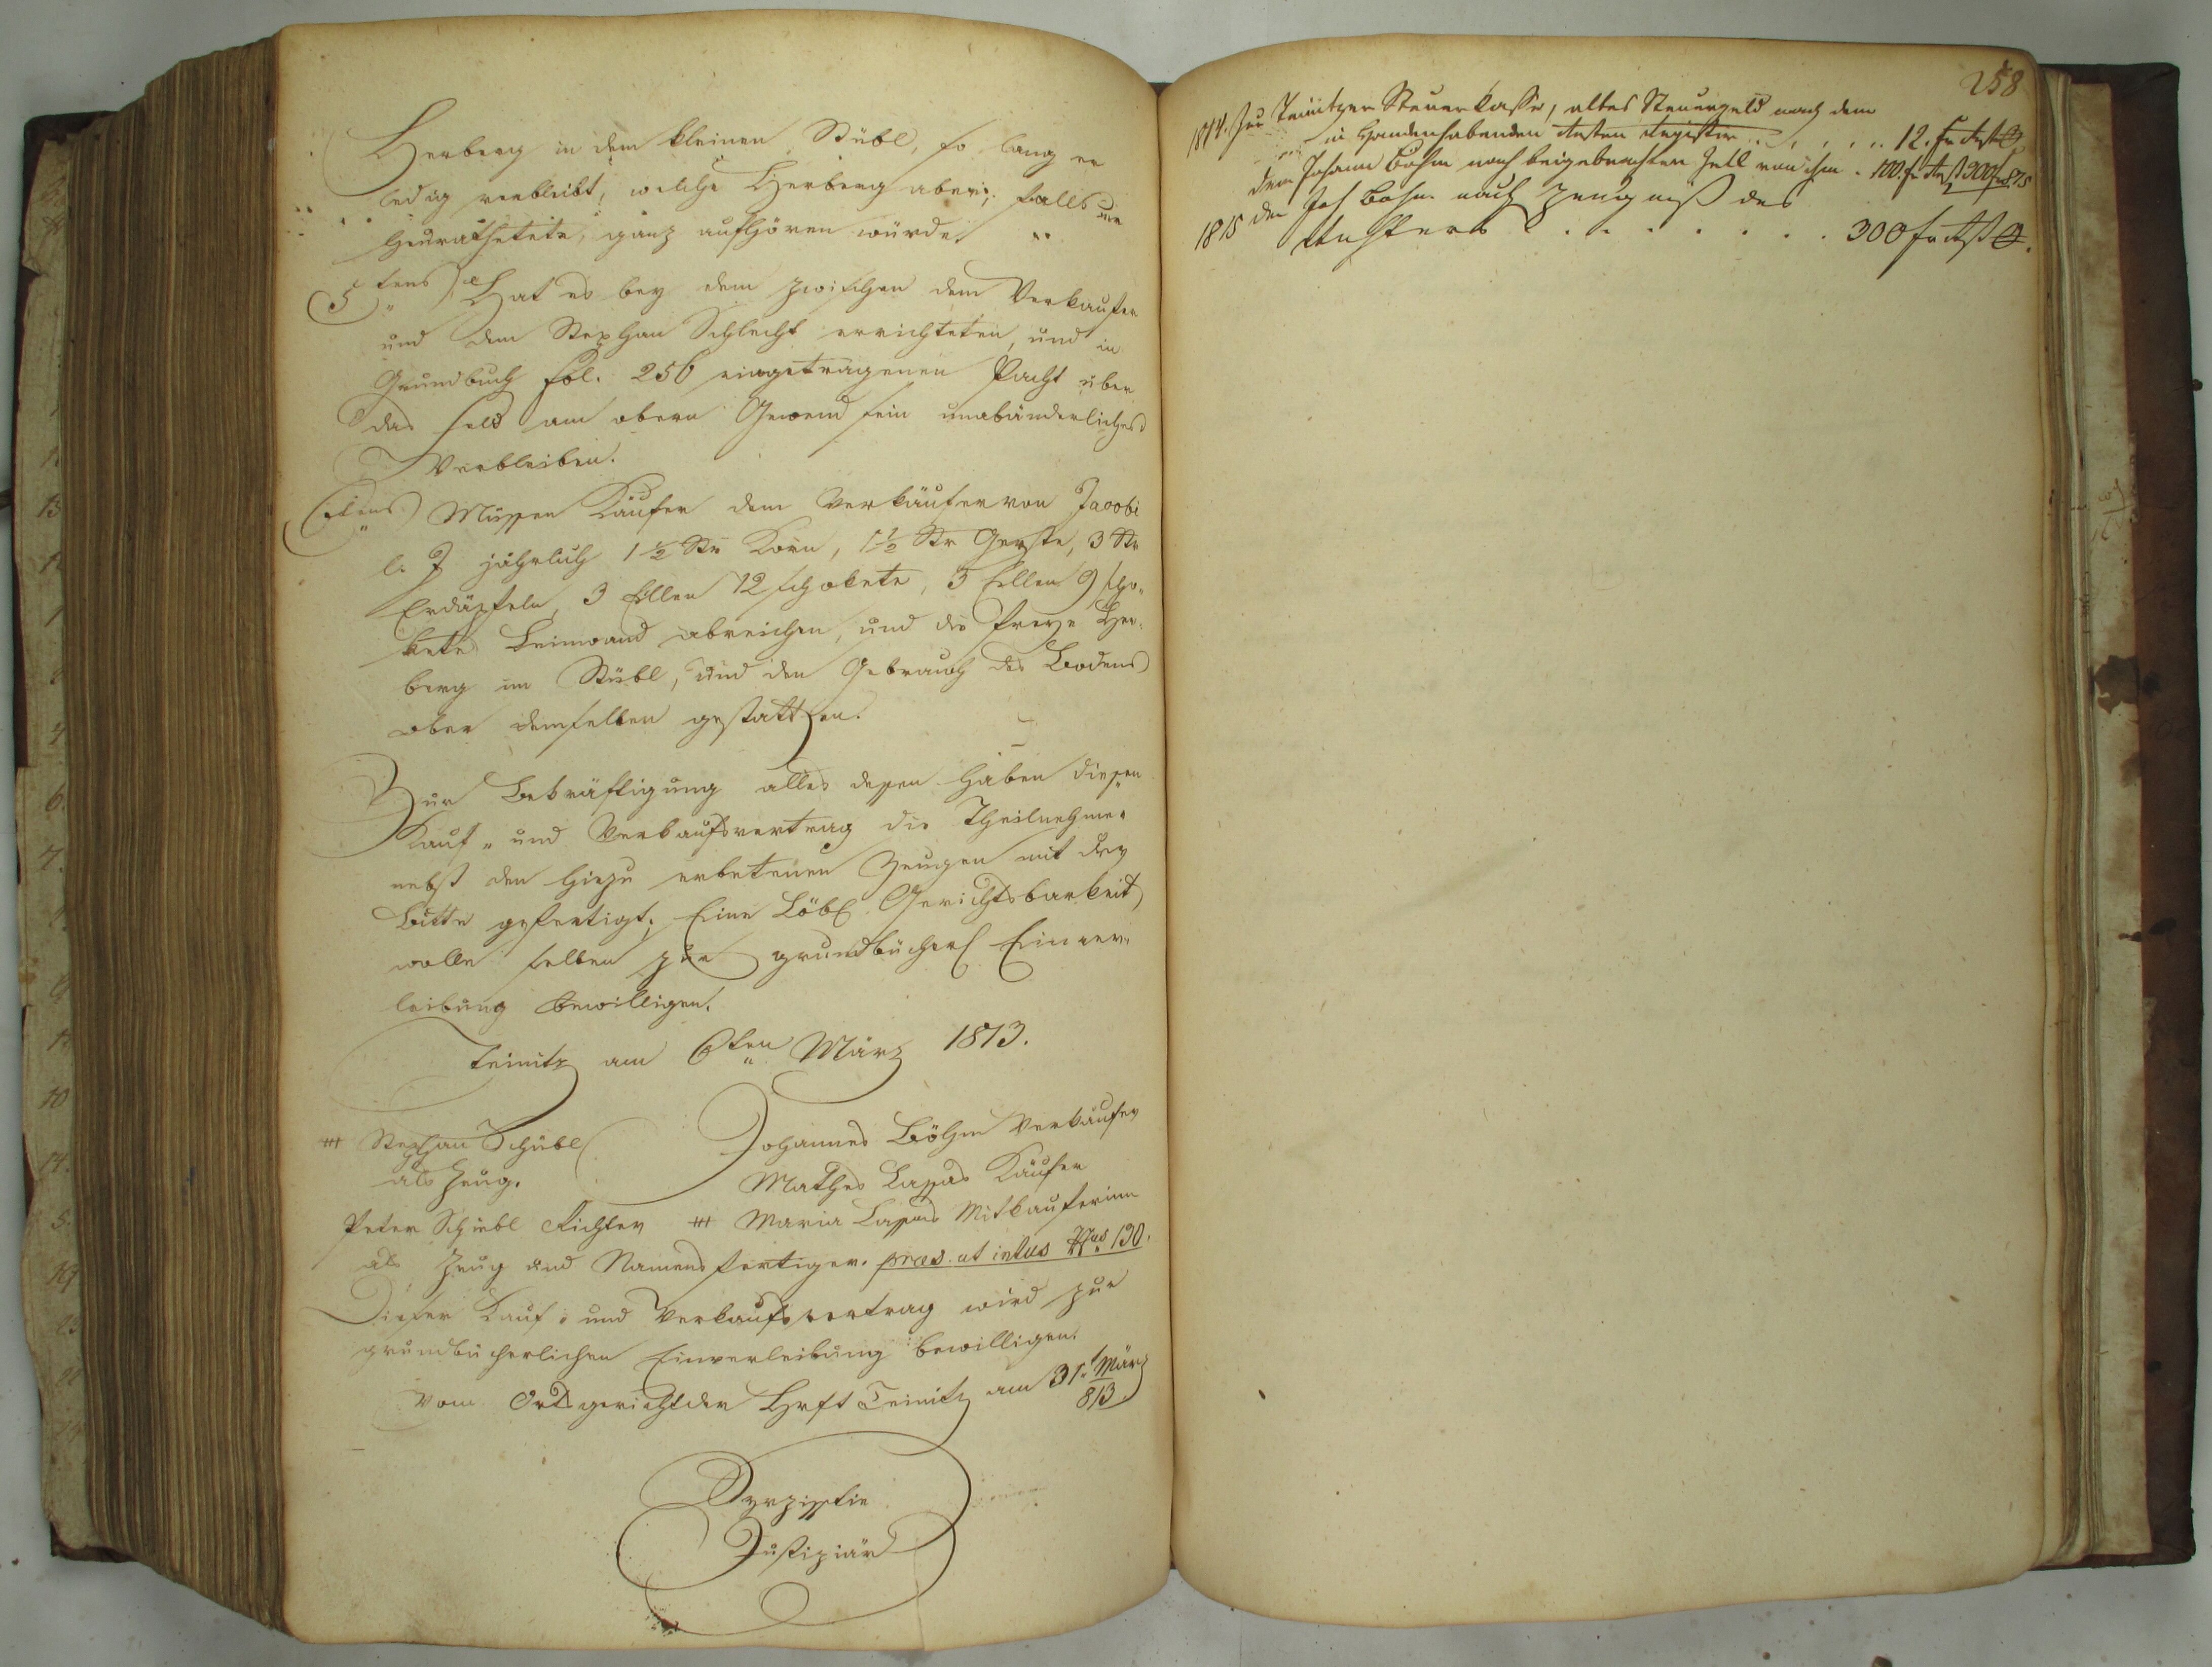 Herberg in dem kleinen Stübl, so lang er
ledig verbleibt, welche Herberg aber; falls er
heurathetete, ganz aufhören würde.
5tens) Hat es bey dem zwischen dem Verkaufer
und dem Stephan Schlecht errichteten, und in
Grundbuch Fol. 256 eingetragenen Pacht über
das Feld am obern Gewend sein unabänderliches
Verbleiben.
6tens) Müssen Käufer dem Verkäufer von Jacobi
l. J jährlich 1 1/2 Str Korn, 1 1/2 Str Gerste, 3 Str
Erdäpfeln, 3 Ellen 12 schokete, 3 Ellen 9 scho-
kete Leinwand abreichen, und die freye Her-
berg im Stübl, und den Gebrauch des Bodens
ober demselben gestatten.
Zur Bekräftigung alles dessen haben diesen
Kauf- und Verkaufsvertrag die Theilnehmer
nebst den hiezu erbetenen Zeugen mit der
Bitte gefertigt; Eine Löbl Gerichtsbarkeit
wolle selben zur grundbücherl Einver-
leibung bewilligen.
Teinitz am 6ten März 1813.
+++ Stephan Schübl Johannes Böhm Verkäufer
als Zeug. Mathes Kaufer
Peter Schiebl Richter +++ Maria Mitkauferinn
als Zeug und Namensfertiger. præs. ut intus Nus 130.
Dieser Kauf- und Verkaufsvertrag wird zur
grundbücherlichen Einverleibung bewilligen.
Vom Ortsgericht der Hrft Teinitz am 31. März
813
Justiziär
258
1814. Zur Teinitzer Steuerkasse, altes Steuergeld nach dem
in Handen habenden Register . . . . . 12. fr
dem Johann Böhm nach beigebrachten Zettl von ihm . 100. fr 300
1815 den Joh Böhm nach Zeugniß des
Richters . . . . . . . 300 fr